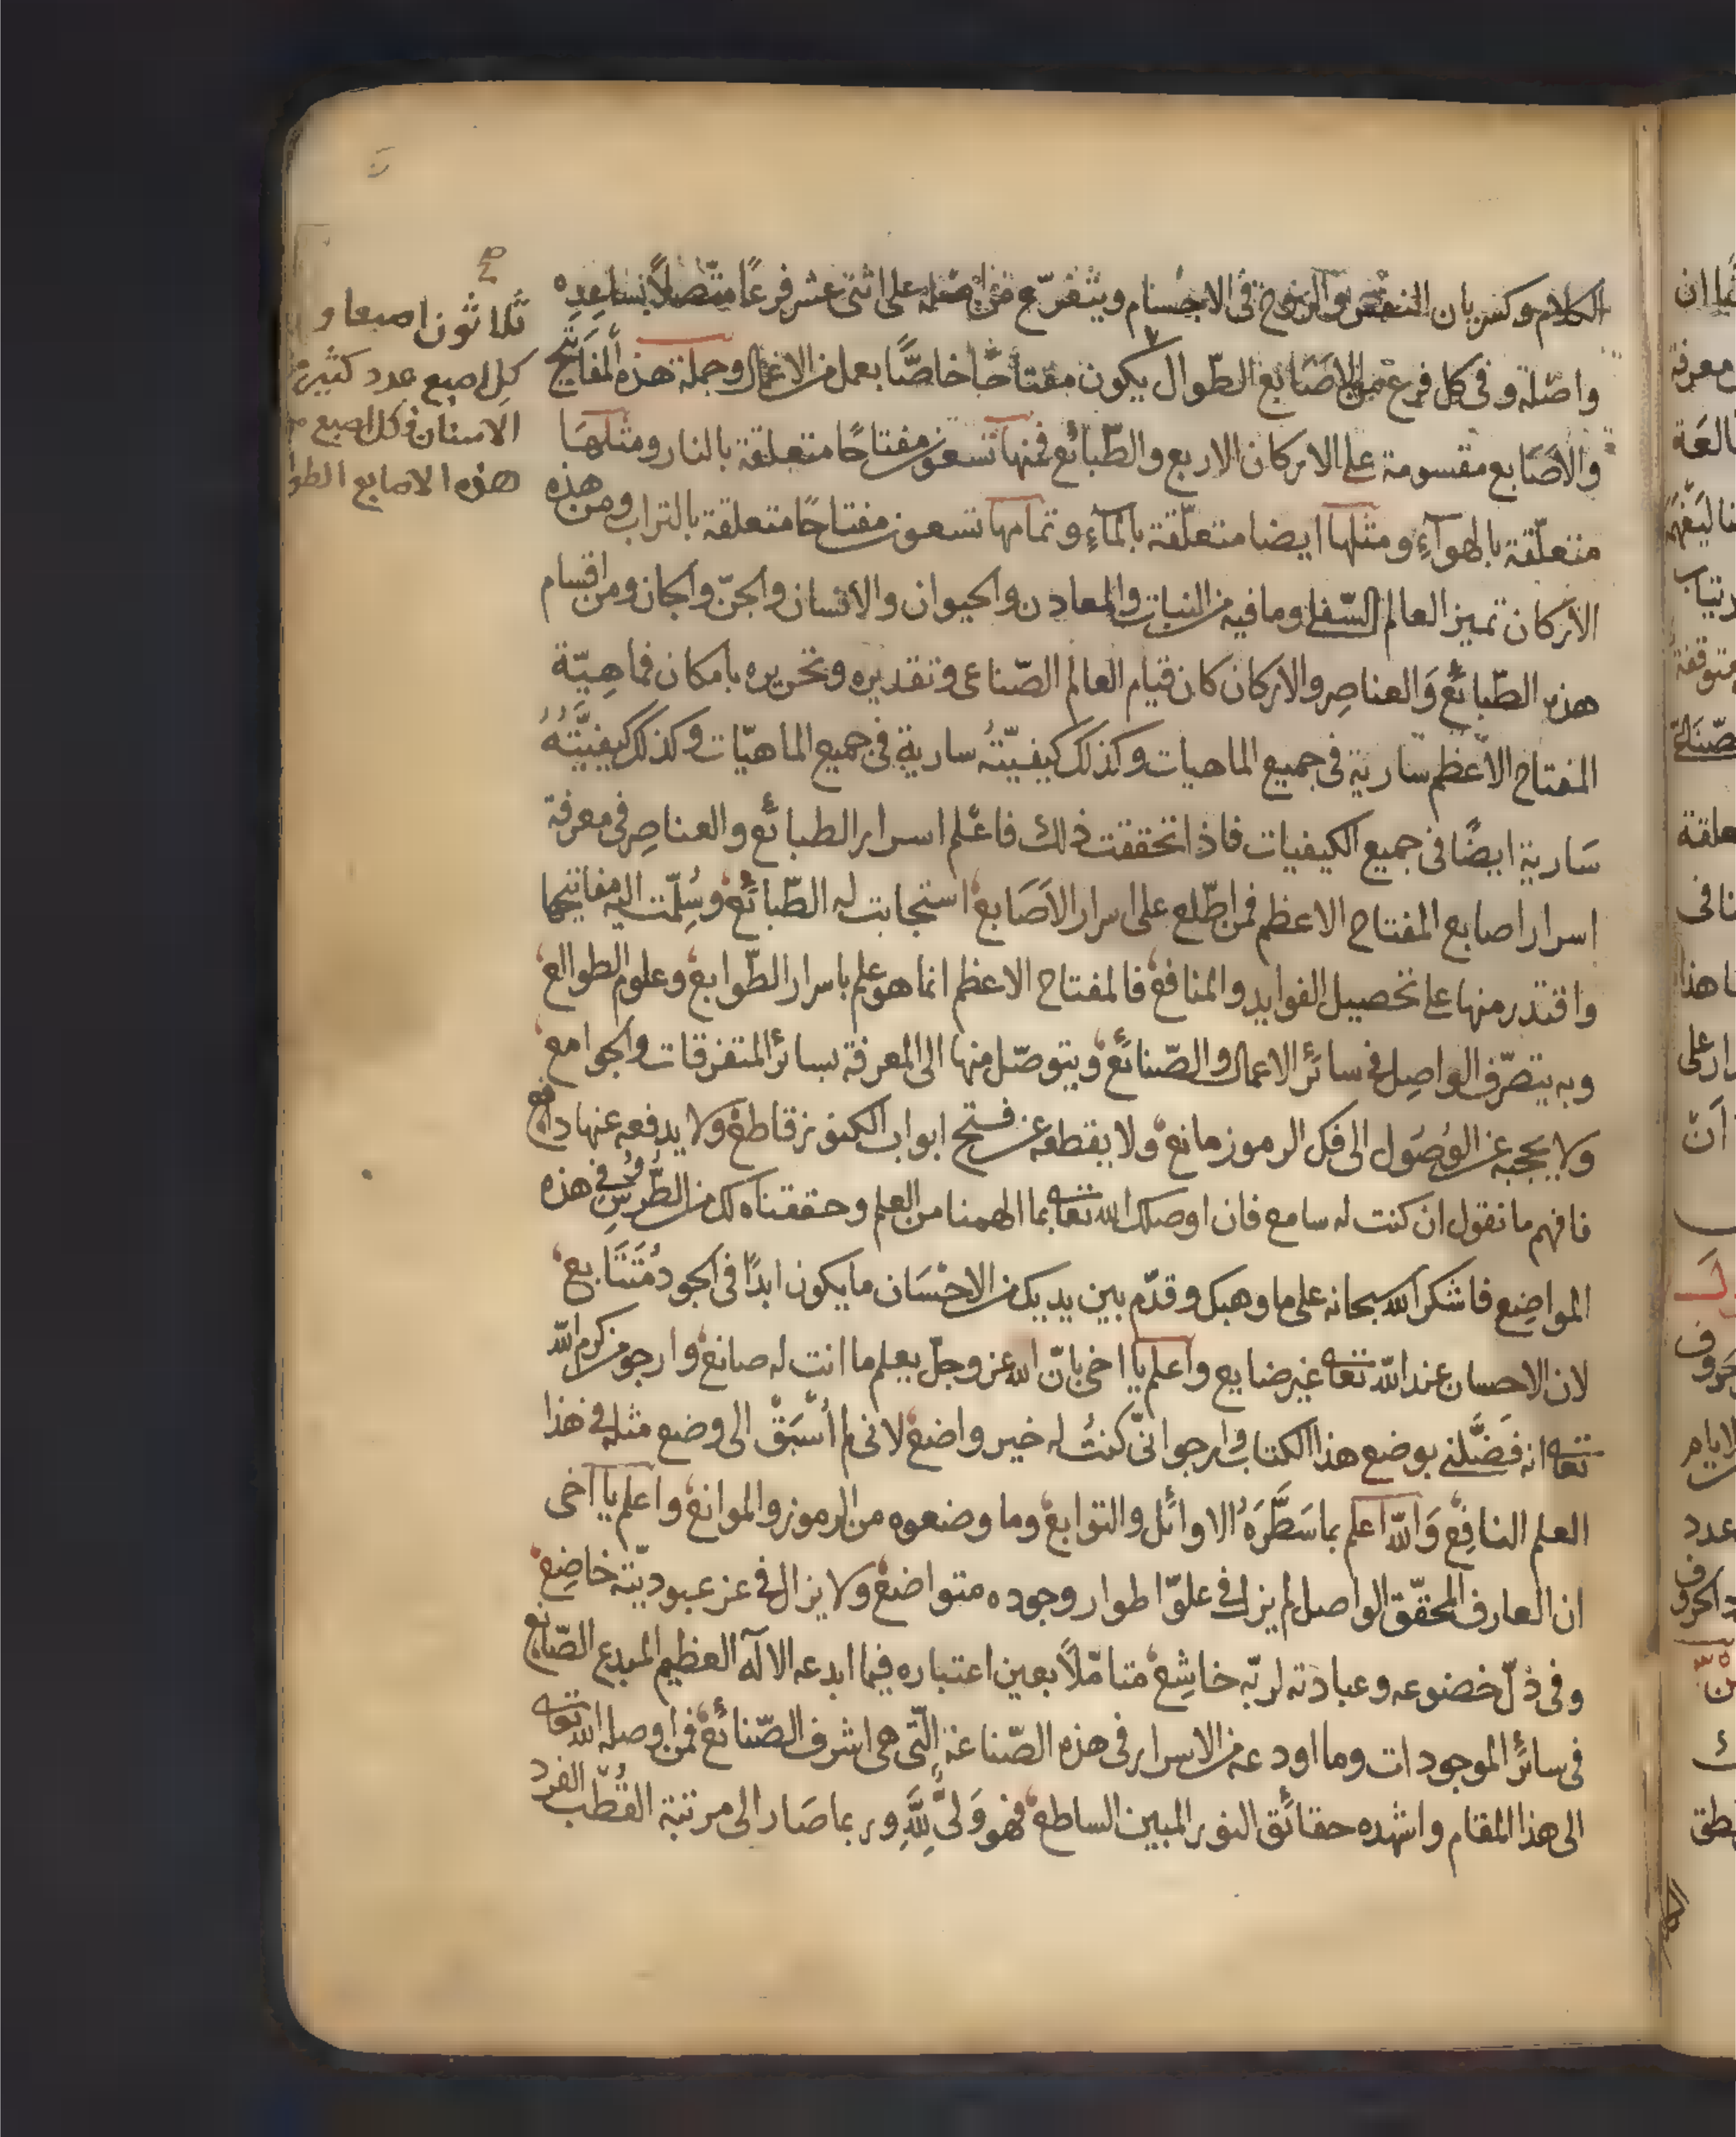 الكلام وكسريان النفس والروح في الاجسام ويتفرع من اصله على اثنى عشر فرعًا متّصلاً بساعِدِه
واصله وفى كل فرع من الاصَابع الطّوال يكون مفتاحًا خاصًّا بعمل من الاعمال وجملة هذه المفَاتيح
والاصَابع مقسومة على الاركان الاربع والطّبائع فمنها تسعون مفتاحًا متعلقة بالنار ومثلهَا
متعلّقة بالهوآءِ ومثلها ايضا متعلّقة بالمآءِ وتمامها تسعون مفتاحًا متعلقة بالتراب ومن هذه
الاركان تميز العالم السّفلى وما فيه من النبات والمعادن والحيوان والانسان والجنّ والجان ومن اقسام
هذه الطّبائع وَالعناصِر والاركان كان قيام العالم الصّناعى وتقديره وتحريره بامكان فماهِيّة
المفتاح الاعظم سارية فى جميع الماهيات وكذلك كيفيّتهُ سارية فى جميع الماهيّات وكذلك كيفيَّتُهُ
سَارية ايضًا فى جميع الكيفيات فاذا تحققت ذلك فاعْلم اسرار الطبائع والعناصِر فى معرفة
اسرار اصابع المفتاح الاعظم فمن اطّلع على اسرار الاصَابع استجابت له الطّبائع وسُلِّمت اليه مفاتيحها
واقتدر منها على تحصيل الفوايد والمنافع فالمفتاح الاعظم انما هو علم باسرار الطّوابع وعلوم الطوالع
وبه يتصرّف الواصِل فى سائر الاعمال والصّنائع ويتوصّل منها الى المعرفة بسائر المتفرقات والجوامع
ولا يحجبه عن الوُصُول الى فك الرموز مانع ولا يقطعه عن فتح ابواب الكنوز قاطع ولا يدفعه عنها دافع
فافهم ما نقول ان كنت له سامع فان اوصلك الله تعالى بما الهمنا من العلم وحققناه لك من الطُّرُسِ فى هذه
المواضِع فاشكر الله سبحانه على ما وهبك وقدّم بين يديك من الاحْسَان ما يكون ابدًا فى الجود مُتَتَابع
لان الاحسان عند الله تعالى غير ضايع واعلم يا اخى بانّ الله عز وجلّ يعلم ما انت له صانع وارجو من كرم الله
تعالى انه فَضَّلنى بوضع هذا الكتاب وارجو انّى كنتُ له خير واضع لانى لم أُسْبَقْ الى وضع مثله فى هذا
العلم النافِع وَالله اعلم بما سَطَّرَهُ الاوائل والتوابع وما وضعوه من الرموز والموانع واعلم يا اخى
ان العارف المحقّق الواصل لم يزل فى علوّ اطوار وجوده متواضع ولا يزال فى عز عبوديّته خاضِع
وفى ذلّ خضوعه وعبادته لربّه خاشِع متامّلاً بعين اعتباره فيما ابدعه الاله العظيم المبدع الصّانع
فى سائر الموجودات وما اودعه من الاسرار فى هذه الصّناعة الّتى هى اشرف الصّنائع فمن اوصله الله تعالى
الى هذا المقام واشهده حقائق النور المبين الساطع فهو وَلىٌّ لِلّهِ وربما صَار الى مرتبة القُطْب الفرد
ثلاثون اصبعا و
كل اصبع عدد كثير من
الاسنان فى كل اصبع من
هذه الاصابع الطوا